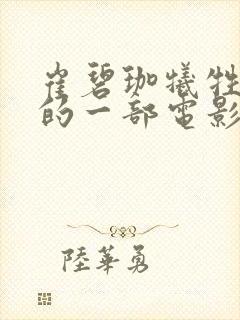 崔碧珈犧牲
的一部電影
陸華勇